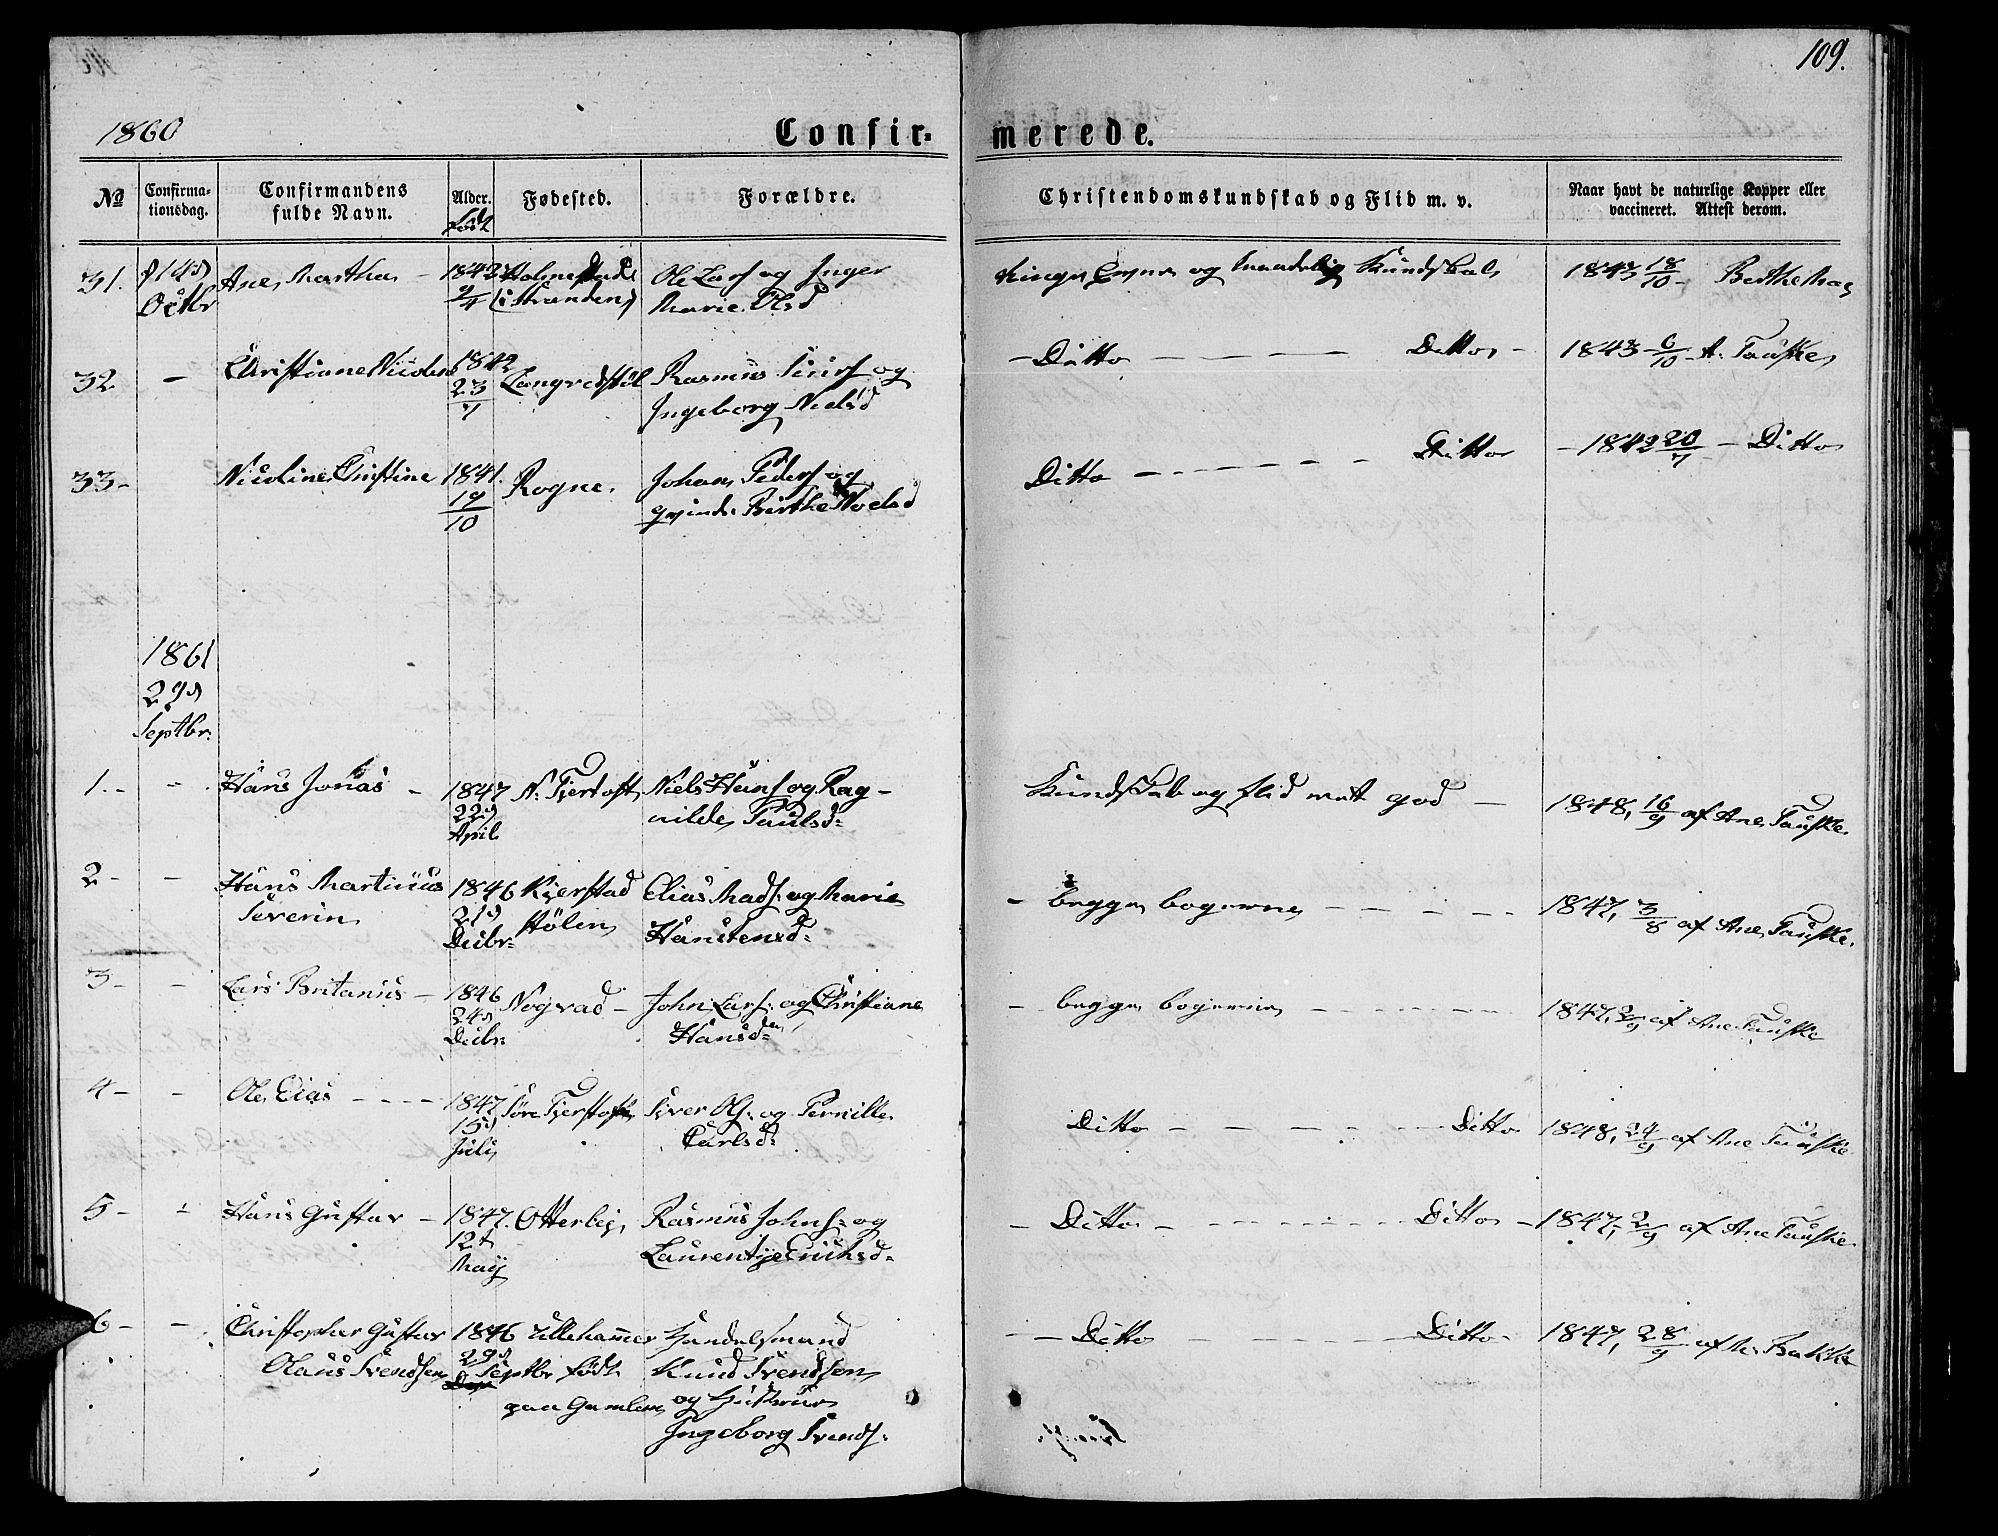 109.
1860
Confir= merede.
No Confirma-tionsdag. Confirmandens fulde Navn. Alder. Født Fødested. Forældre. Christendomskundskab og Flid m. v. Naar havt de naturlige Kopper eller vaccineret. Attest derom.
31. d 14de Octbr Ane Martha - 1842 9/4 Holmestad (i Stranden) Ole Lars og Inger Marie Olsd Ringe Evne og maadelig Kundskab 1843 18/10 - Berthe
32 - Christiane Nicoline 1842 23/7 Longvastøl Rasmus og Ingeborg Nielsd - Ditto - - - Ditto - 1843 6/10 A. Tauske
33 - Nicoline Christine 1841. 19/10 Rogne. Johan Peders og Berthe Ditto - - - Ditto - 1842 20/7 - Ditto
1861
29d
Septbr:
1. - - Hans Jonas - 1847 22d April N. Fjertoft Niels Hans og Ragnilde Paulsd: Kundskab og flid mett god - 1848, 16/9 af Ane Tauske.
2 - - Hans Martinus Severin 1846 21d Decbr: Kjerstad stølen Elias Mads: og Marie Hanstensd: - begge bogerne - - - 1847, 3/8 af Ane Tauske.
3 - - Lars Britanus - 1846 24d Decbr: Nogvad - John Lars: og Christiane Hansd: - begge bogerne - - - 1847, 2/9 af Ane Tauske
4 - - Ole Elias - - - 1847 15d Juli Søre Fjertoft Siver Ols: og Pernille Carlsd: Ditto - - - Ditto 1848, 24/9 af Ane Tauske
5 - - Hans Gustav - 1847. 12t May Otterlei Rasmus Johns: og Laurentje Eriksd: - Ditto - - - Ditto - 1847, 2/9 af Ane Tauske.
6 - - Christopher Gustav Olaus Svendsen 1846 29d Septbr Lillehammer født paa Gamlem Handelsmand Knud Svendsen og Hustrue Ingeborg Svends: - Ditto - Ditto - 1847, 28/9 af A. Bakke